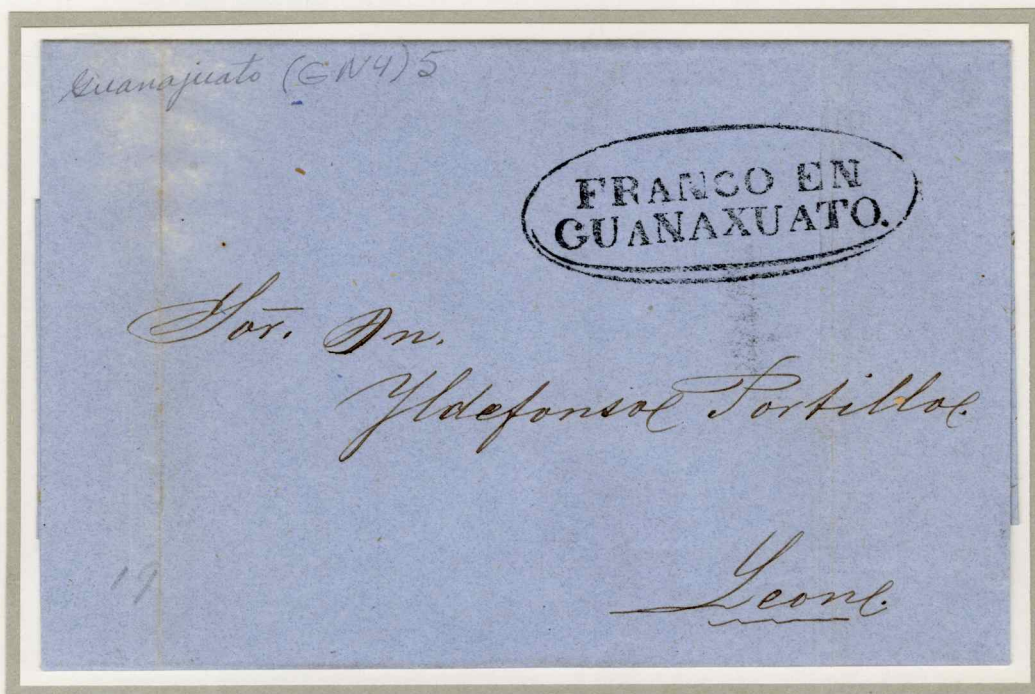 Guanajuato (GN4) 5
FRANCO EN
GUANAXUATO.
Sor. Dn.
Yldefonso Portillo.
Leon.
19